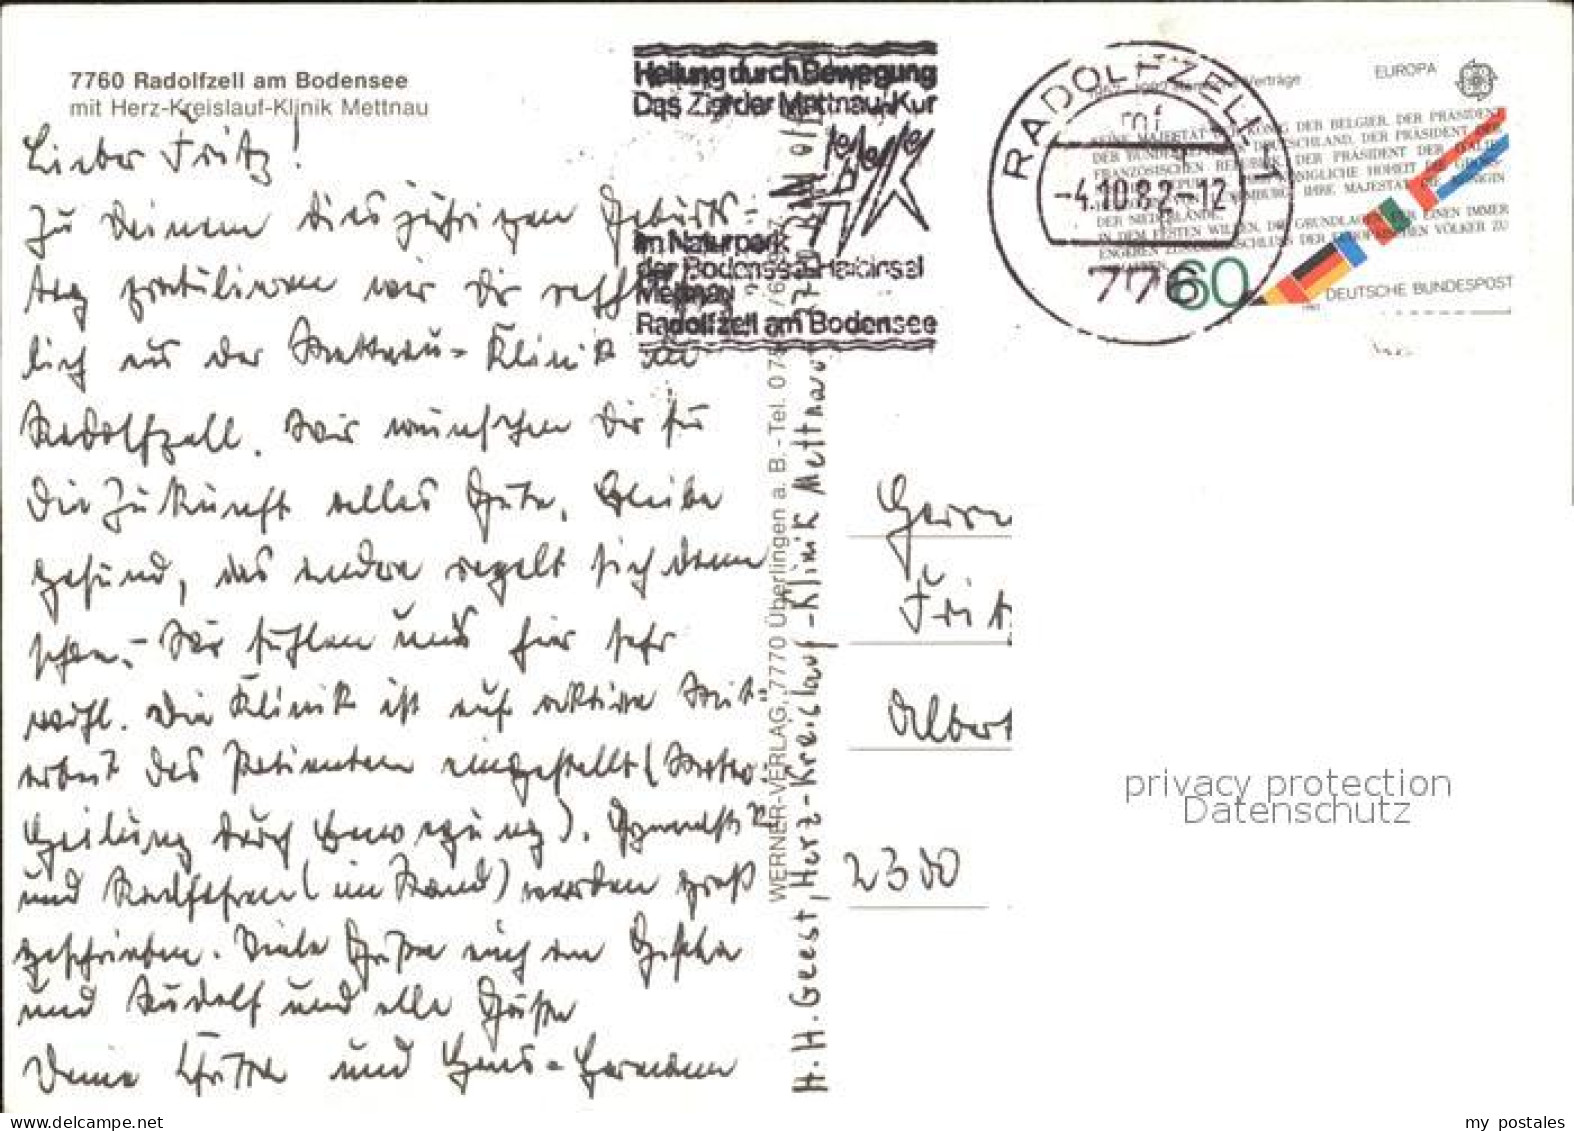 7760 Radolfzell am Bodensee
mit Herz-Kreislauf-Klinik Mettnau
Lieber Fritz!
Zu Deinem diesjährigen Geburts-
tag gratulieren wir Dir
lich aus der Mettnau-Klinik in
Radolfzell. Wir wünschen Dir für
die Zukunft alles Gute. Bleibe
gesund, das andre regelt sich dann
schon.- Wir fühlen uns hier sehr
wohl. Die Klinik ist auf aktive Mit-
arbeit des Patienten eingestellt (Motto:
"Heilung durch Bewegung"). Gymnastik
und Radfahren (im Stand) werden groß
geschrieben. Viele Grüße auch an
und Rudolf und alle Gäste
Deine und Hans-Hermann
WERNER-VERLAG, 7770 Überlingen a. B. - Tel. 075
H.H. Geest, Herz-Kreislauf-Klinik Mettnau
Heilung durch Bewegung
Das Ziel der Mettnau-Kur
Im Naturpark
der Bodensee-Halbinsel
Mettnau
Radolfzell am Bodensee
RADOLFZELL 1
mf
-4.10.82-12
7760
Verträge
EUROPA
SEINE MAJESTÄT DER KÖNIG DER BELGIER, DER PRÄSIDENT
DER BUNDESREPUBLIK DEUTSCHLAND, DER PRÄSIDENT DER
FRANZÖSISCHEN REPUBLIK, DER PRÄSIDENT DER ITALIE-
KÖNIGLICHE HOHEIT DIE GROSS-
IHRE MAJESTÄT DIE KÖNIGIN
DER NIEDERLANDE,
IN DEM FESTEN WILLEN, DIE GRUNDLAGEN FÜR EINEN IMMER
ENGEREN ZUSAMMENSCHLUSS DER EUROPÄISCHEN VÖLKER ZU
60
DEUTSCHE BUNDESPOST
Herrn
Frit
Albert
2300
privacy protection
Datenschutz
my postales